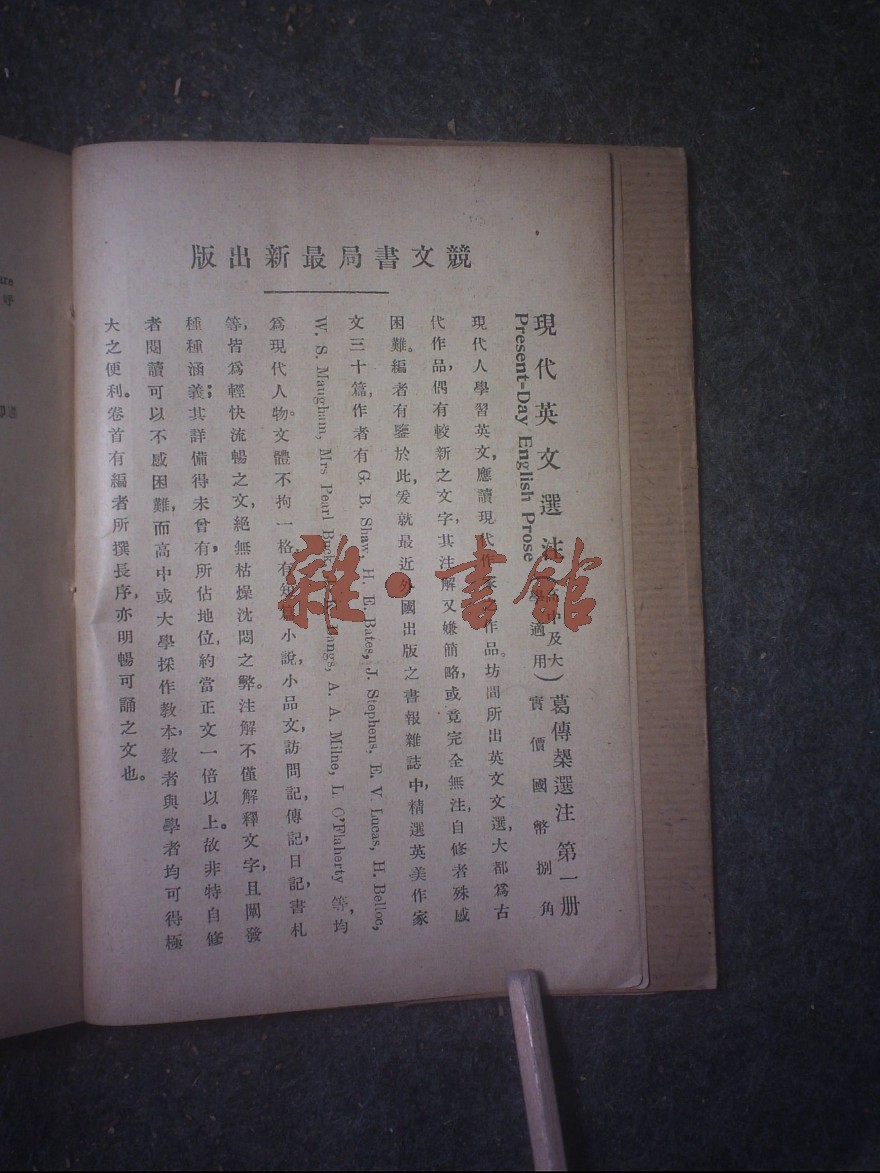 競文書局最新出版
現代英文選注(高中及大學適用)葛傳槼選注 第一册
Present-Day English Prose 實價國幣捌角
現代人學習英文,應讀現代作家之作品。坊間所出英文文選,大都爲古
代作品,偶有較新之文字,其注解又嫌簡略,或竟完全無注,自修者殊感
困難。編者有鑒於此,爰就最近外國出版之書報雜誌中,精選英美作家
文三十篇,作者有G. B. Shaw, H. E. Bates, J. Stephens, E. V. Lucas, H. Belloc,
W. S. Maugham, Mrs Pearl Buck, Bangs, A. A. Milne, L. O'Flaherty 等,均
爲現代人物。文體不拘一格,有短篇小說,小品文,訪問記,傳記,日記,書札
等,皆爲輕快流暢之文,絕無枯燥沈悶之弊。注解不僅解釋文字,且闡發
種種涵義;其詳備得未曾有,所佔地位,約當正文一倍以上。故非特自修
者閱讀可以不感困難,而高中或大學採作教本,教者與學者均可得極
大之便利。卷首有編者所撰長序,亦明暢可誦之文也。
雜·書館